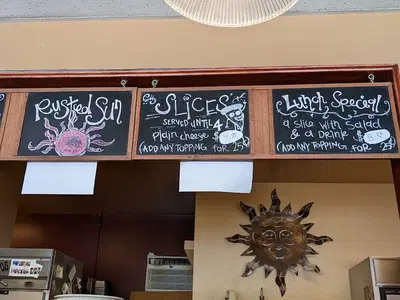 Rusted Sun
SLICES
SERVED UNTIL 4
plain cheese $
(ADD ANY TOPPING FOR 25¢)
Lunch Special!
a slice with Salad
& a Drink $
(ADD ANY TOPPING FOR 25¢)